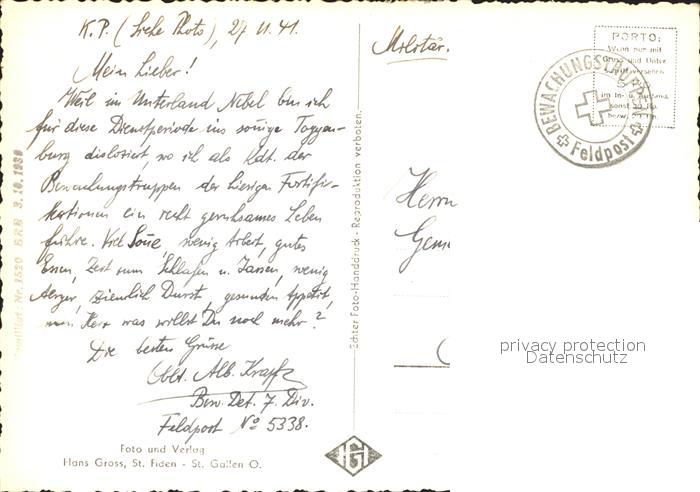 K.P. (Siehe Photo), 27. 11. 41.
Mein Lieber!
Weil im Unterland Nebel bin ich
für diese Dienstperiode ins sonige Toggen-
burg disloziert, wo ich als Kdt. der
Bewachungstruppen der hiesigen Fortifi-
kationen ein recht geruhsames Leben
führe. Viel Sone, wenig Arbeit, gutes
Essen, Zeit zum Schlafen u. Jassen, wenig
Aerger, ziemlich Durst, gesunden Appetit,
mein Herz was willst Du noch mehr?
Die besten Grüsse
Oblt. Alb. Krapf
Bew. Det. 7. Div.
Feldpost No 5338.
Foto und Verlag
Hans Gross, St. Fiden - St. Gallen O.
Nr. 1520 BRB 3.10.1939
Echter Foto-Handdruck - Reproduktion verboten.
Militär.
PORTO:
Wenn nur mit
Gruss und Unter-
im In- u. Ausland
sonst 10 Rp.
BEWACHUNGSTRUPPEN
Feldpost
Herrn
privacy protection
Datenschutz